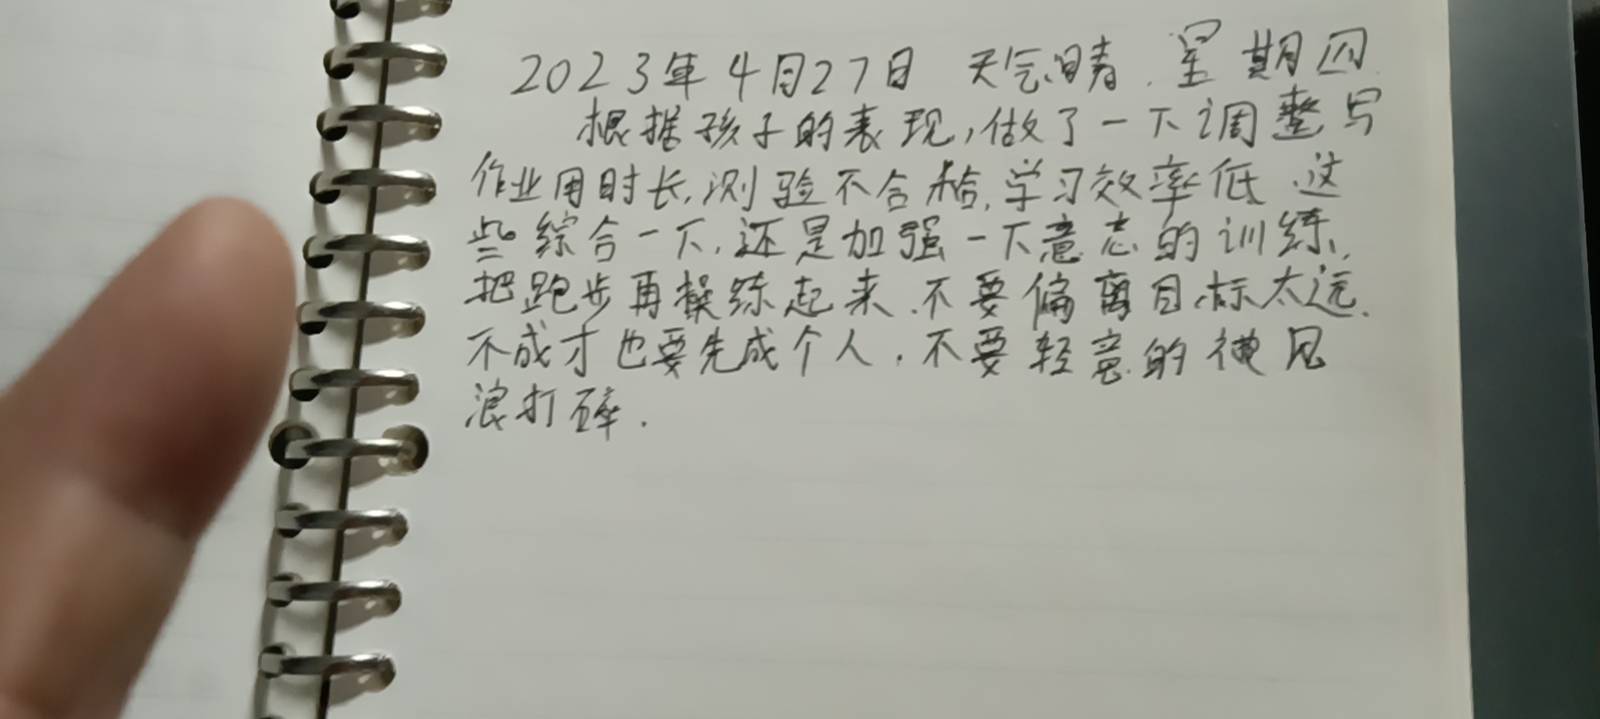 2023年4月27日 天气晴.星期四.
根据孩子的表现,做了一下调整写
作业用时长,测验不合格,学习效率低.这
些综合一下,还是加强一下意志的训练,
把跑步再操练起来.不要偏离目标太远.
不成才也要先成个人,不要轻意的被风
浪打碎.